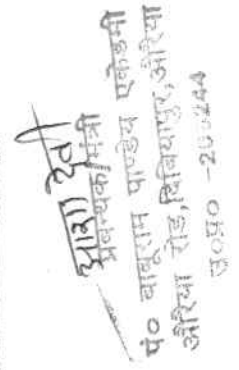 आशा देवी
प्रबन्धक/मंत्री
पं० बाबूराम पाण्डेय एकेडमी
औरैया रोड, दिबियापुर, औरैया
उ०प्र० -206244